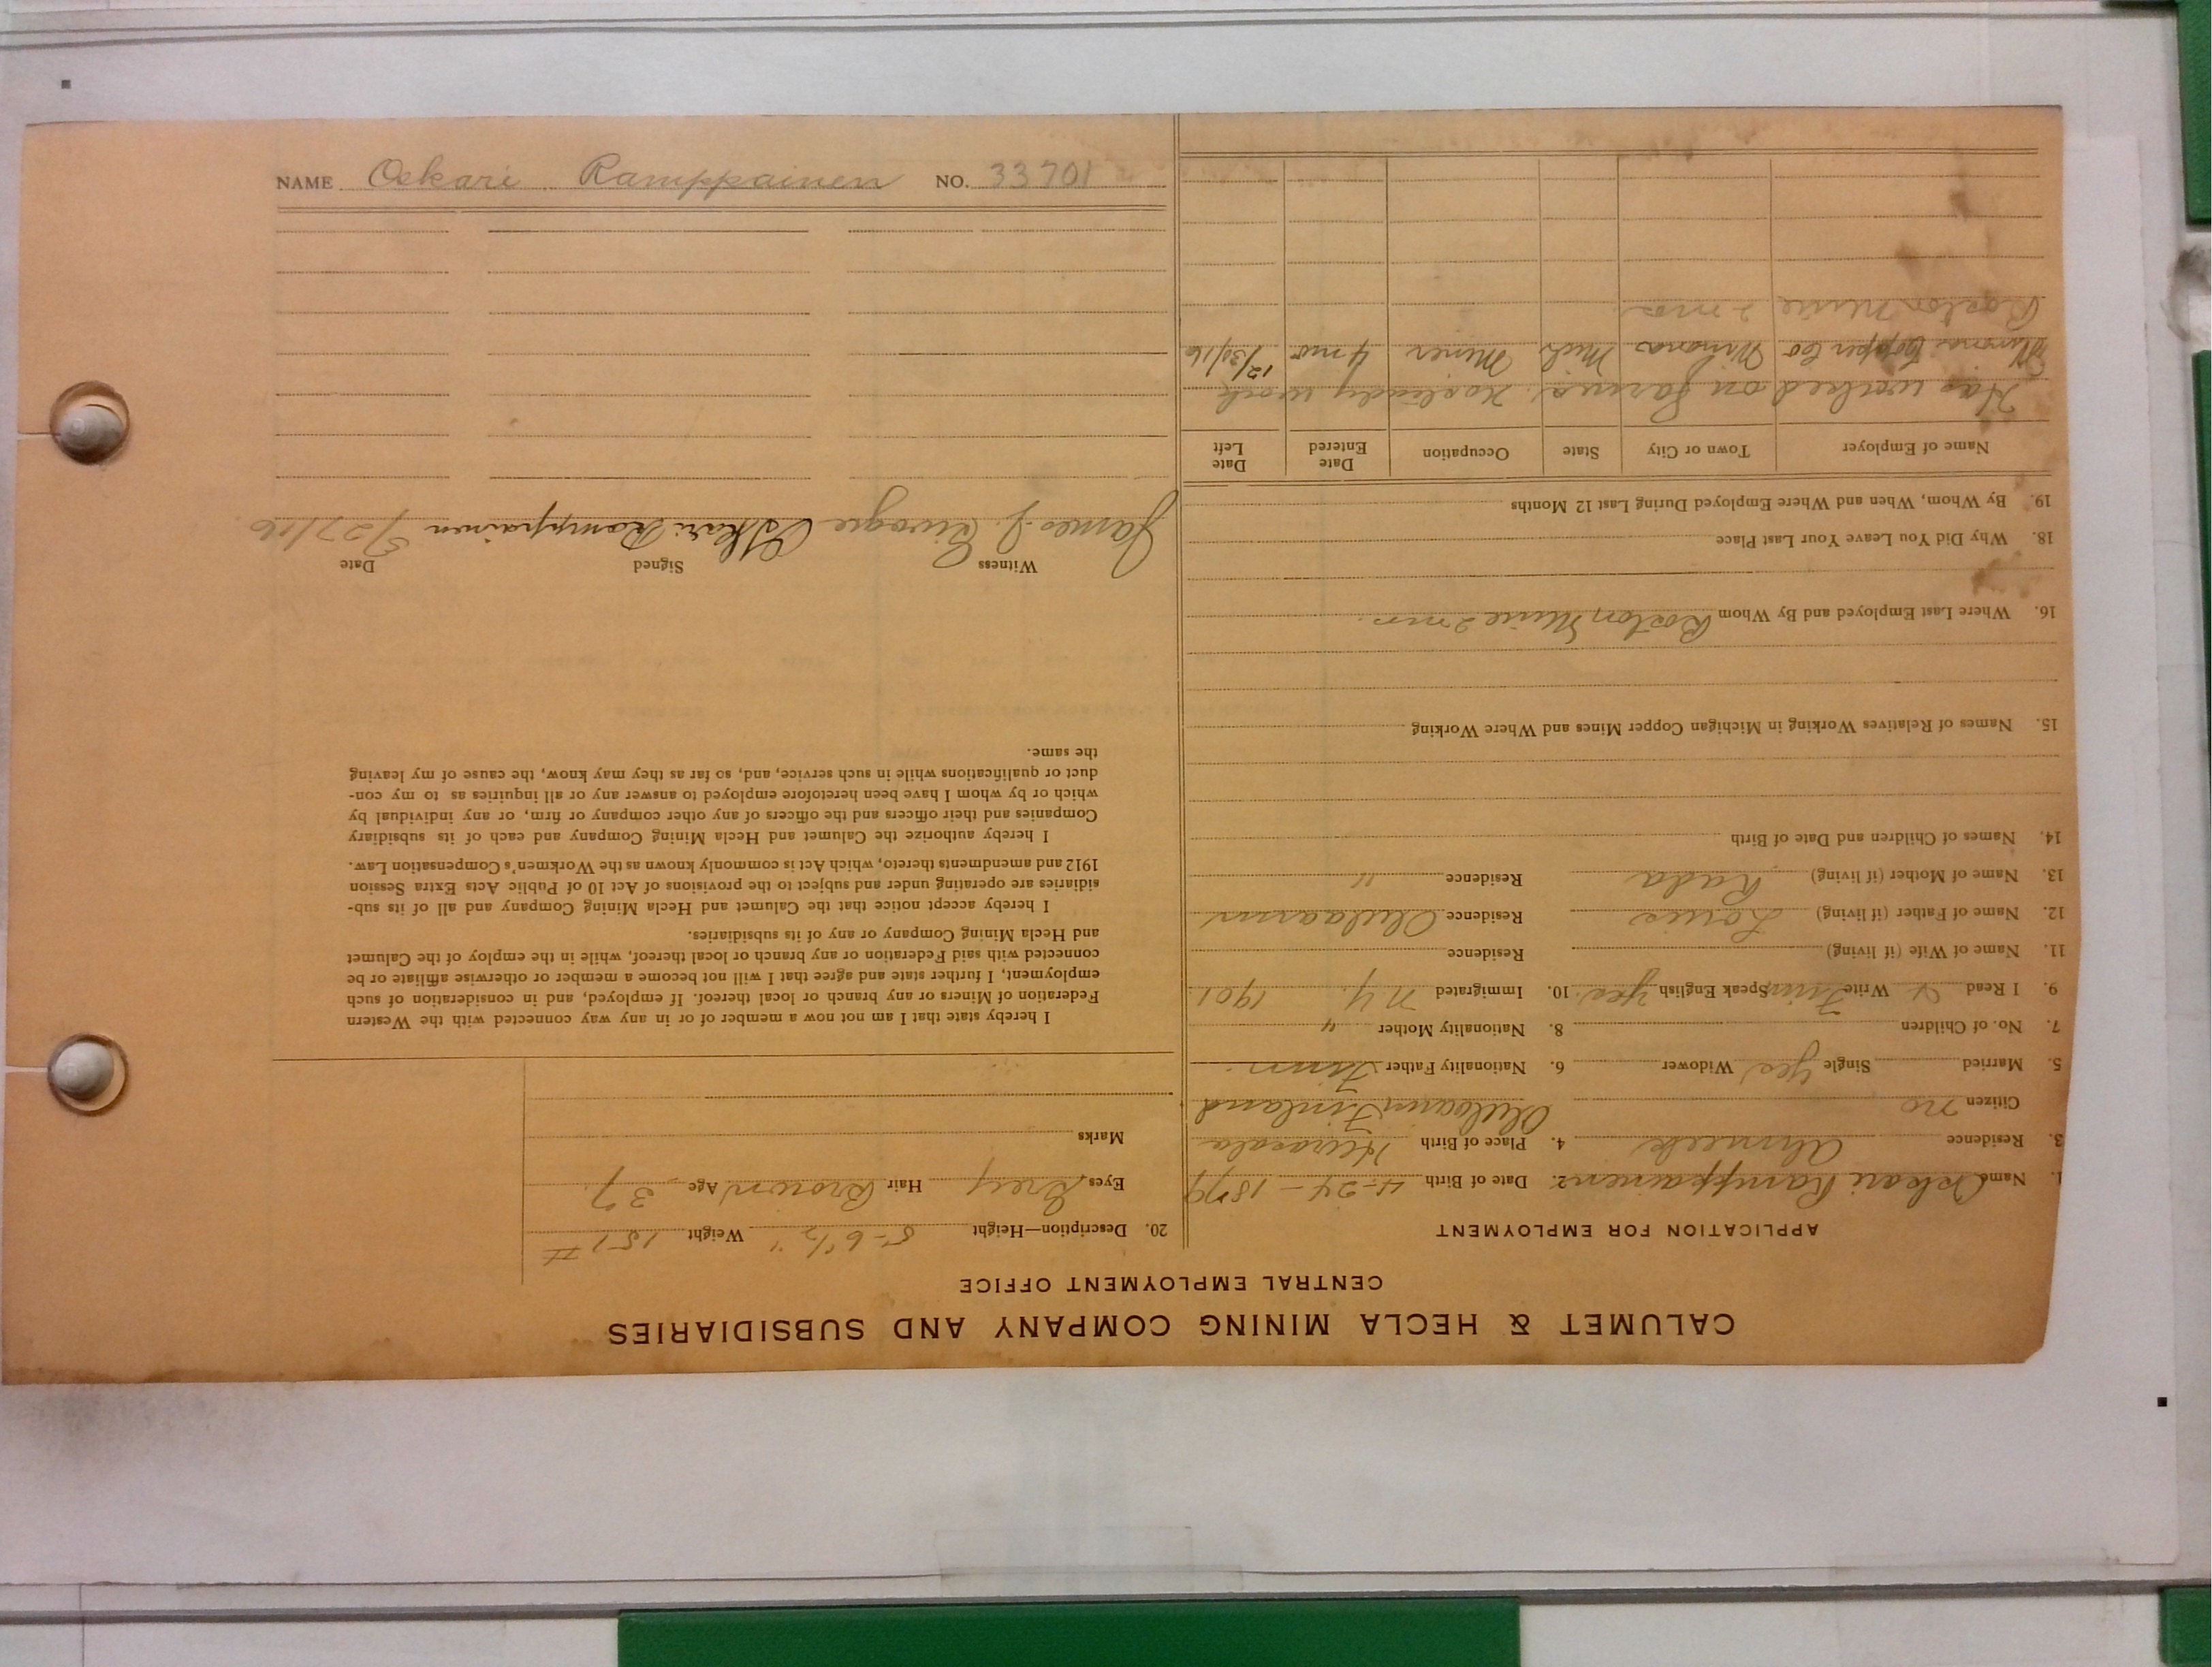 CALUMET & HECLA MINING COMPANY AND SUBSIDIARIES
CENTRAL EMPLOYMENT OFFICE
APPLICATION FOR EMPLOYMENT
1. Name Oskari Ramppainen 2. Date of Birth 4-24-1879
3. Residence Ahmeek 4. Place of Birth
Citizen no Finland
5. Married Single Yes Widower 6. Nationality Father Finn
7. No. of Children 8. Nationality Mother "
9. I Read Write Finn Speak English Yes 10. Immigrated N.Y. 1901
11. Name of Wife (if living) Residence
12. Name of Father (if living) Louis Residence
13. Name of Mother (if living) Residence "
14. Names of Children and Date of Birth
15. Names of Relatives Working in Michigan Copper Mines and Where Working
16. Where Last Employed and By Whom Boston Mine 2 mos.
18. Why Did You Leave Your Last Place
19. By Whom, When and Where Employed During Last 12 Months
Name of Employer Town or City State Occupation Date Entered Date Left
Has worked on farms, work
Winona Copper Co Winona Mich Miner 4 mo 12/30/16
Boston Mine 2 mos
20. Description—Height 5-6½" Weight 151 #
Eyes Grey Hair Brown Age 37
Marks
I hereby state that I am not now a member of or in any way connected with the Western
Federation of Miners or any branch or local thereof. If employed, and in consideration of such
employment, I further state and agree that I will not become a member or otherwise affiliate or be
connected with said Federation or any branch or local thereof, while in the employ of the Calumet
and Hecla Mining Company or any of its subsidiaries.
I hereby accept notice that the Calumet and Hecla Mining Company and all of its sub-
sidiaries are operating under and subject to the provisions of Act 10 of Public Acts Extra Session
1912 and amendments thereto, which Act is commonly known as the Workmen's Compensation Law.
I hereby authorize the Calumet and Hecla Mining Company and each of its subsidiary
Companies and their officers and the officers of any other company or firm, or any individual by
which or by whom I have been heretofore employed to answer any or all inquiries as to my con-
duct or qualifications while in such service, and, so far as they may know, the cause of my leaving
the same.
Witness Signed Date
James J. Oskari Ramppainen
NAME Oskari Ramppainen NO. 33701